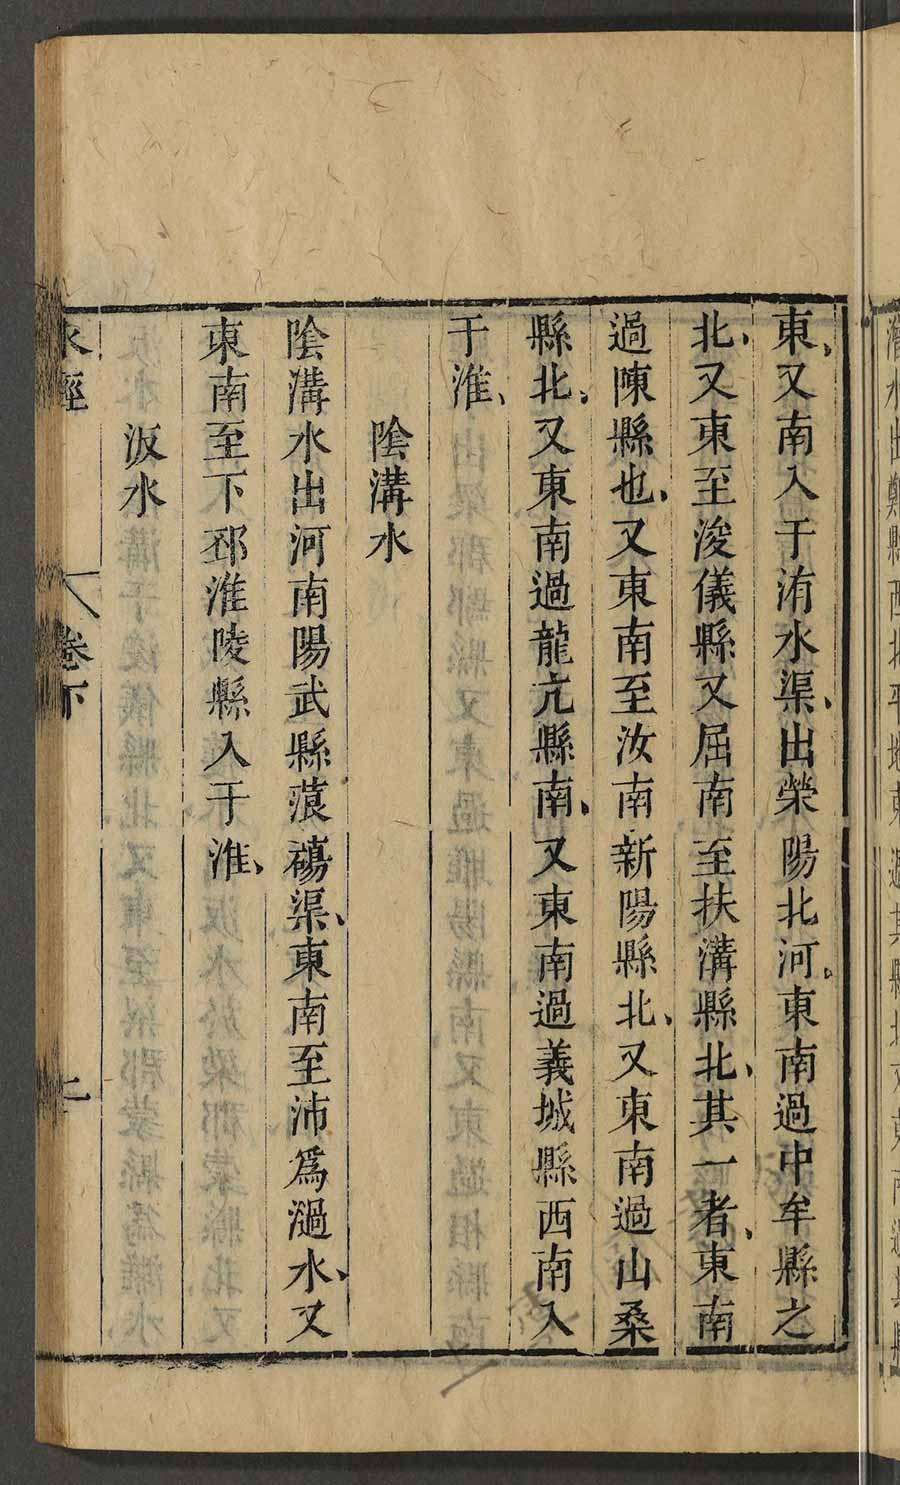 東、又南入于洧水渠、出滎陽北河、東南過中牟縣之
北、又東至浚儀縣又屈南至扶溝縣北、其一者、東南
過陳縣也、又東南至汝南新陽縣北、又東南過山桑
縣北、又東南過龍亢縣南、又東南過義城縣西南入
于淮、
陰溝水
陰溝水出河南陽武縣蒗蕩渠、東南至沛爲濄水、又
東南至下邳淮陵縣入于淮、
汳水
水經 卷下